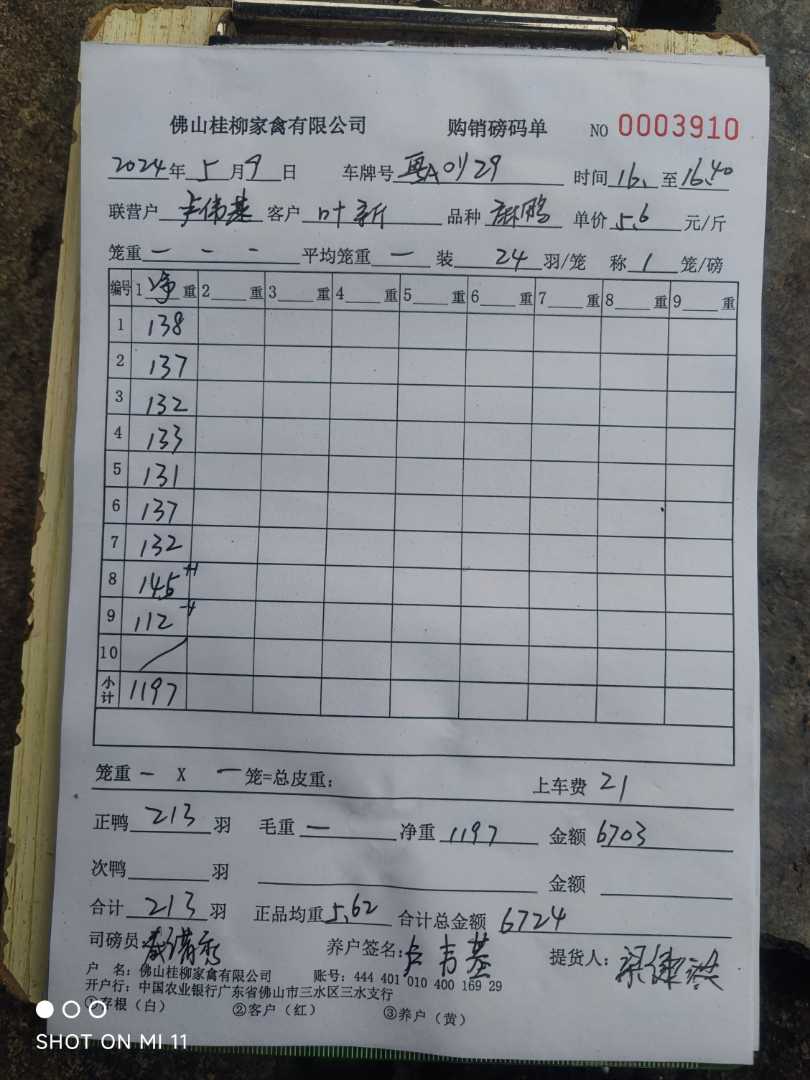 佛山桂柳家禽有限公司 购销磅码单 NO 0003910
2024年5月9日 车牌号 粤A0129 时间16. 至16.40
联营户 卢伟基 客户 叶新 品种 麻鸭 单价5.6 元/斤
笼重 一 - - 平均笼重 一 装 24 羽/笼 称 1 笼/磅
编号 1 净 重 2 重 3 重 4 重 5 重 6 重 7 重 8 重 9 重
1 138
2 137
3 132
4 133
5 131
6 137
7 132
8 145 +1
9 112 -4
10 /
小计 1197
笼重 一 X 一 笼=总皮重: 上车费 21
正鸭 213 羽 毛重 一 净重 1197 金额 6703
次鸭 羽 金额
合计 213 羽 正品均重 5.62 合计总金额 6724
司磅员: 养户签名: 卢韦基 提货人:
户 名: 佛山桂柳家禽有限公司 账号: 444 401 010 400 169 29
开户行: 中国农业银行广东省佛山市三水区三水支行
①存根（白） ②客户（红） ③养户（黄）
SHOT ON MI 11